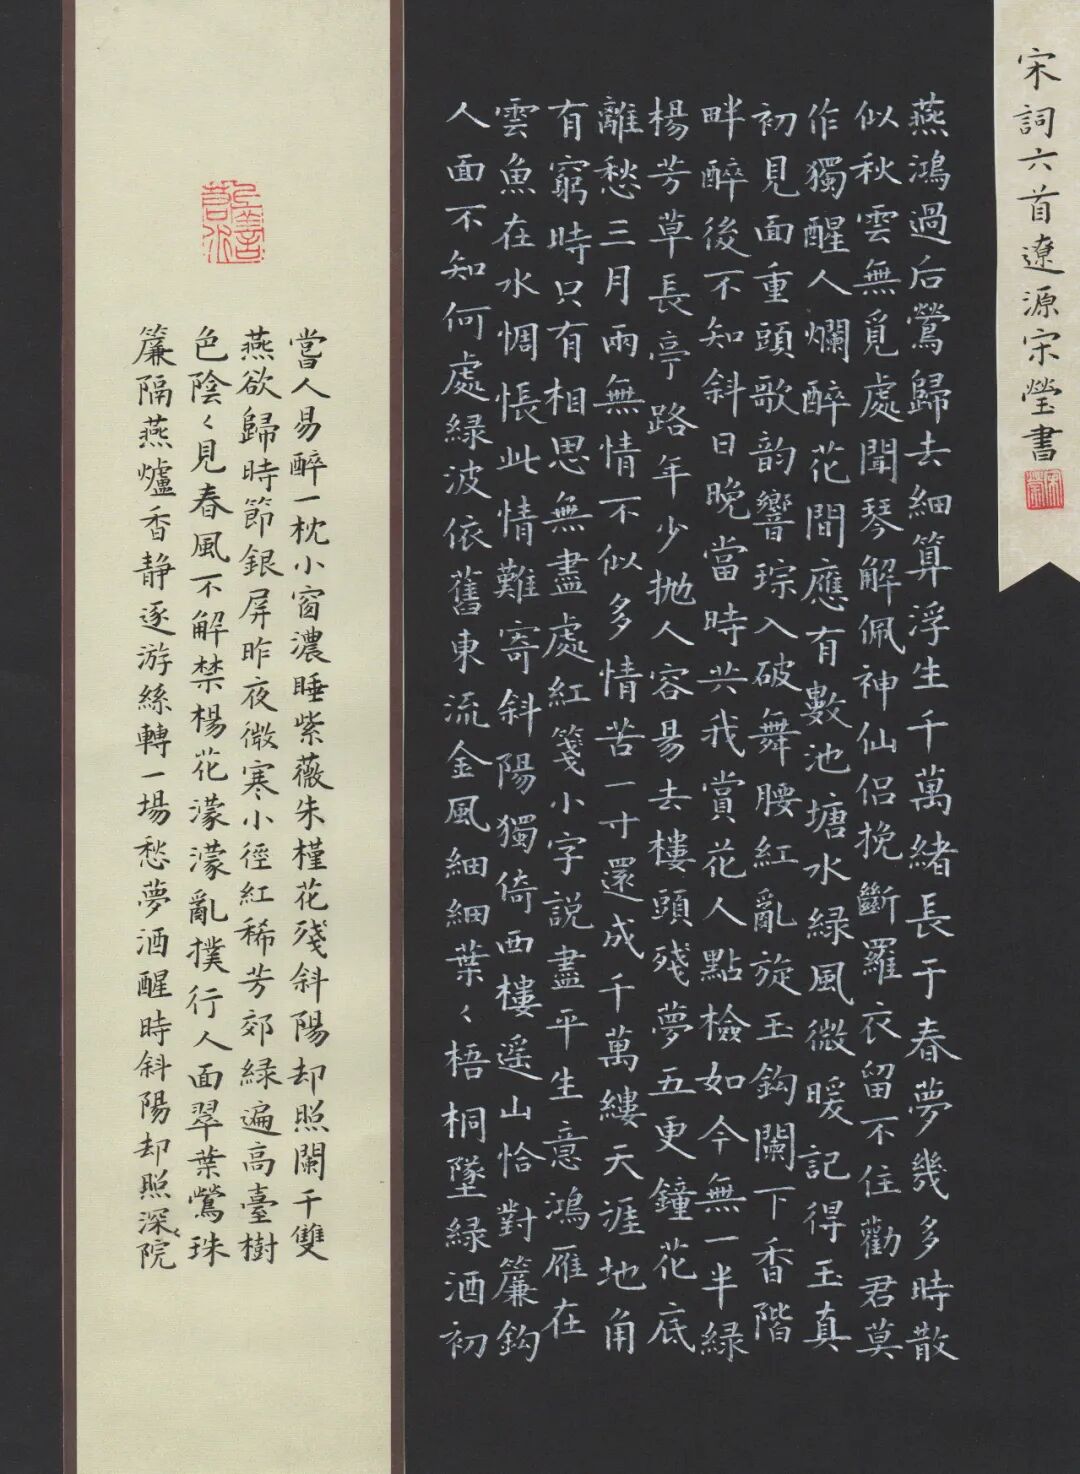 宋詞六首遼源宋瑩書
宋瑩
燕鴻過后鶯歸去細算浮生千萬緒長于春夢幾多時散
似秋雲無覓處聞琴解佩神仙侶挽斷羅衣留不住勸君莫
作獨醒人爛醉花間應有數池塘水緑風微暖記得玉真
初見面重頭歌韵響琮入破舞腰紅亂旋玉鈎闌下香階
畔醉後不知斜日晚當時共我賞花人點檢如今無一半緑
楊芳草長亭路年少抛人容易去樓頭殘夢五更鐘花底
離愁三月雨無情不似多情苦一寸還成千萬縷天涯地角
有窮時只有相思無盡處紅箋小字説盡平生意鴻雁在
雲魚在水惆悵此情難寄斜陽獨倚西樓遥山恰對簾鈎
人面不知何處緑波依舊東流金風細細葉々梧桐墜緑酒初
嘗人易醉一枕小窗濃睡紫薇朱槿花殘斜陽却照闌干雙
燕欲歸時節銀屏昨夜微寒小徑紅稀芳郊緑遍高臺樹
色陰々見春風不解禁楊花濛濛亂撲行人面翠葉鶯珠
簾隔燕爐香静逐游絲轉一場愁夢酒醒時斜陽却照深々院
上善若水